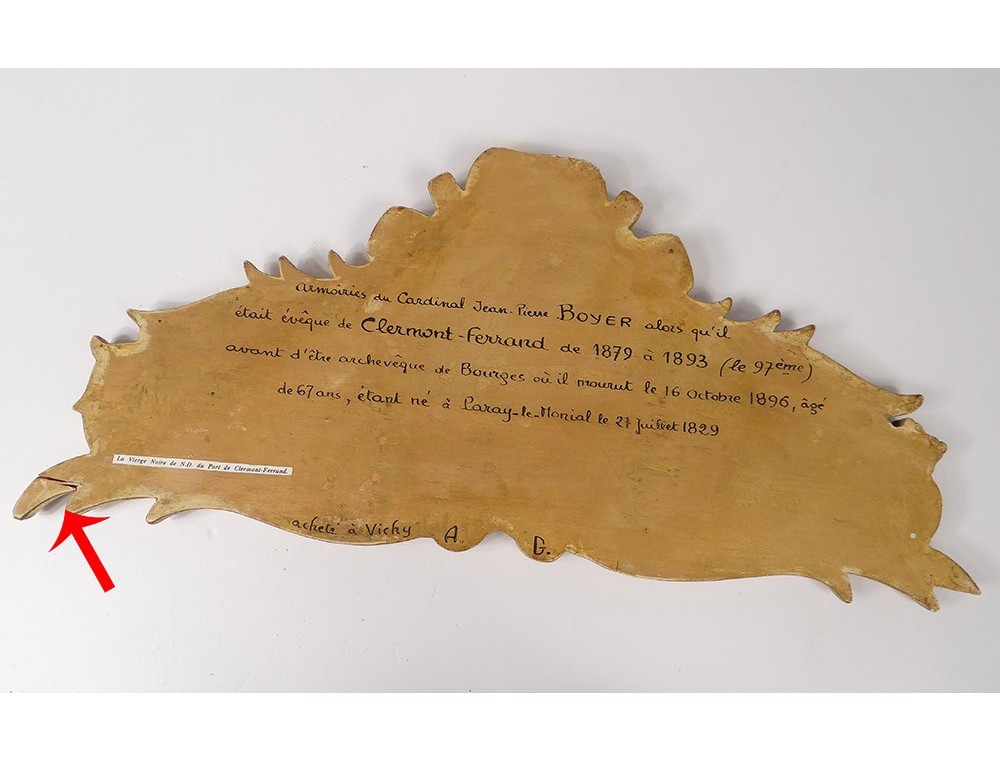 armoiries du Cardinal Jean-Pierre BOYER alors qu'il
était évêque de Clermont-Ferrand de 1879 à 1893 (le 97ème)
avant d'être archevêque de Bourges où il mourut le 16 octobre 1896, âgé
de 67 ans, étant né à Paray-le-Monial le 27 juillet 1829
La Vierge Noire de N.D. du Port de Clermont-Ferrand.
acheté à Vichy A. G.